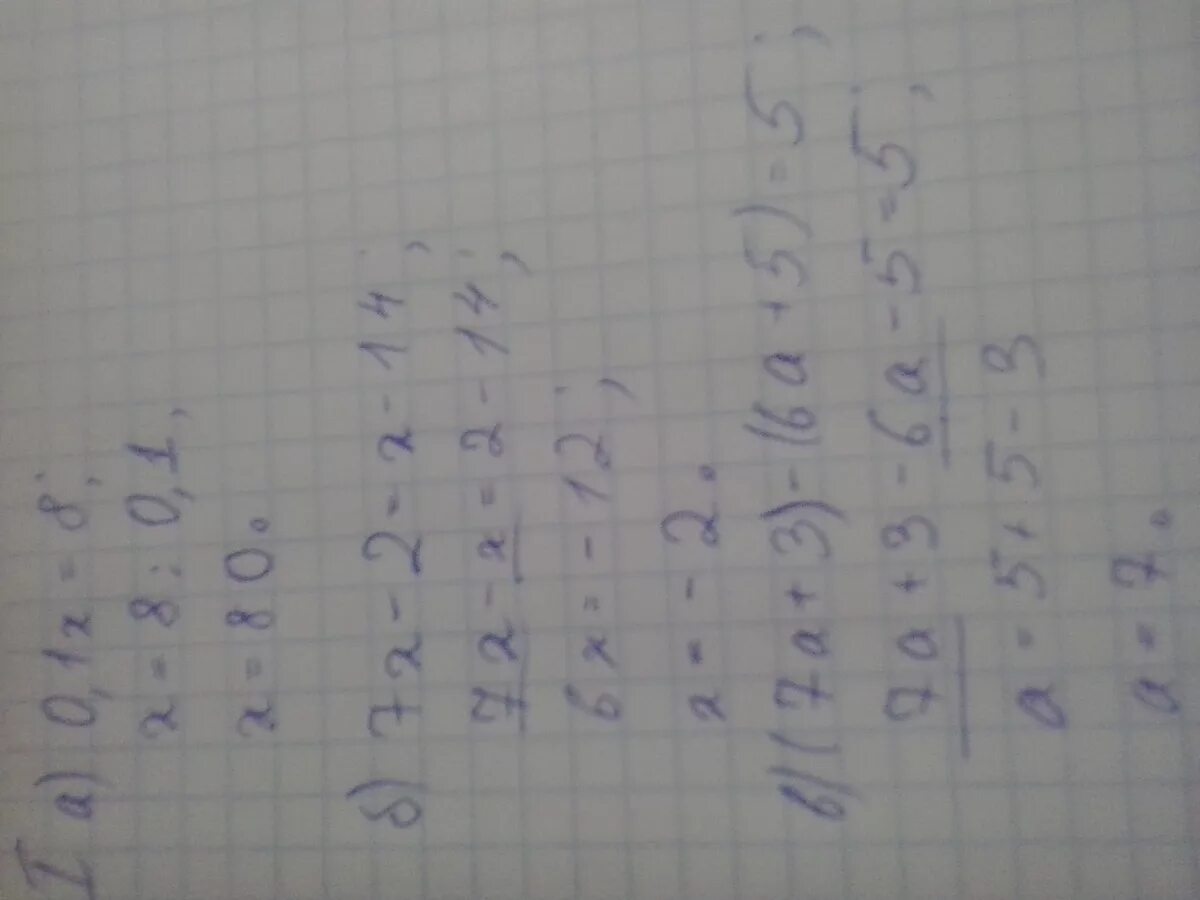 I
а) 0,1x = 8;
x = 8 : 0,1,
x = 80.
б) 7x - 2 = x - 14;
7x - x = 2 - 14;
6x = - 12;
x = - 2.
в) (7a + 3) - (6a + 5) = 5;
7a + 3 - 6a - 5 = 5;
a = 5 + 5 - 3
a = 7.